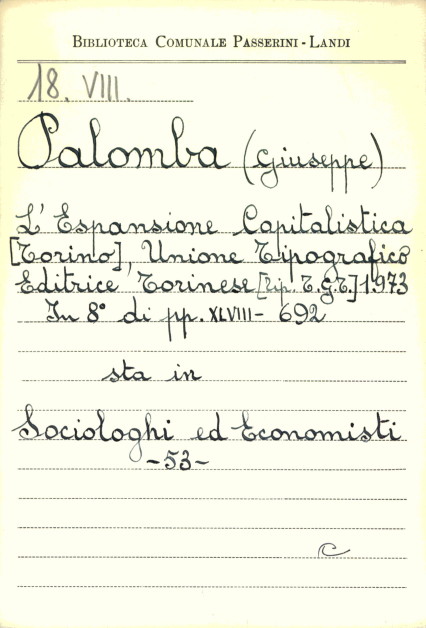 BIBLIOTECA COMUNALE PASSERINI - LANDI
18. VIII.
Palomba (Giuseppe)
L'Espansione Capitalistica
[Torino], Unione Tipografico
Editrice Torinese [tip. T.G.T.] 1973
In 8° di pp. XLVIII - 692
sta in
Sociologhi ed Economisti
-53-
C